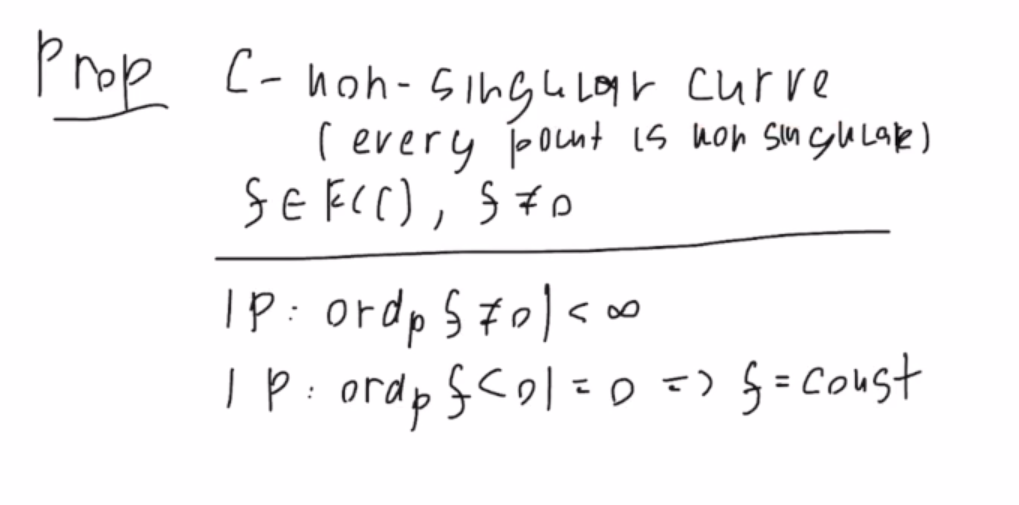 Prop C - non-singular curve
(every point is non singular)
f ∈ K(C), f ≠ 0
|P: ord_P f ≠ 0| < ∞
|P: ord_P f < 0| = 0 => f = const